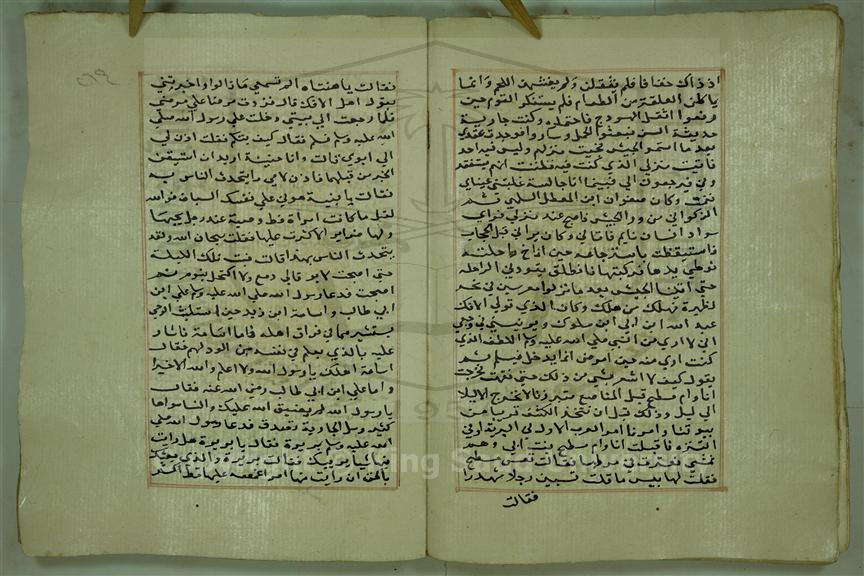 اذ ذاك خفافا فلم يثقلن ولم يغشهن اللحم وانما
ياكلن العلقة من الطعام فلم يستنكر القوم حين
رفعوا اثقل الهودج فاحتملوه وكنت جارية
حديثة السن فبعثوا الجمل وساروا فوجدت عقدي
بعد ما استمر الجيش فجئت منزلهم وليس فيه احد
فاتيت منزلي الذي كنت فيه فظننت انهم سيفقدو
وني فيرجعون الي فبينما انا جالسة غلبتني عيناي
فنمت وكان صفوان ابن المعطل السلمي ثم
الزكواني من ورا الجيش فاصبح عند منزلي فراي
سواد انسان نايم فاتاني وكان يراني قبل الحجاب
فاستيقظت باسترجاعه حين اناخ راحلته
فوطي يدها فركبتها فانطلق يقود بي الراحله
حتى اتينا الجيش بعد ما نزلوا معرسين في نحر
الظهيرة فهلك من هلك وكان الذي تولي الافك
عبد الله ابن ابي ابن سلول ويريبني في وجعي
اني لا اري من النبي صلي الله عليه وسلم اللطف الذي
كنت اري منه حين امرض انما يدخل فيسلم ثم
يقول كيف لا اشعر بشي من ذلك حتى نقهت فخرجت
انا وام مسطح قبل المناصع متبرزنا لانخرج الا ليلا
الي ليل وذلك قبل ان نتخذ الكنف قريبا من
بيوتنا وامرنا امر العرب الاول في البرية او في
التنزه فاقبلت انا وام مسطح بنت ابي رهم
نمشي فعثرت في مرطها فقالت تعس مسطح
فقلت لها بيس ما قلت تسبين رجلا شهد بدرا
فقالت
فقالت يا هنتاه الم تسمعي ما ذا قالوا واخبرتني
بقول اهل الافك قالت فزدت مرضا علي مرضي
فلما رجعت الي بيتي دخلت علي رسول الله صلي
الله عليه وسلم فسلم فقال كيف تيكم فقلت اذن لي
الي ابوي قالت وانا حينئذ اريد ان استيقن
الخبر من قبلهما فاذن لامي ما يتحدث الناس به
فقالت يا بنية هوني علي نفسك الشان فوالله
لقل ما كانت امراة قط وضيئة عند رجل يحبها
ولها ضراير الا اكثرن عليها فقلت سبحان الله ولقد
يتحدث الناس بهذا قالت فبت تلك الليلة
حتى اصبحت لا يرقا لي دمع ولا اكتحل بنوم ثم
اصبحت فدعا رسول الله صلي الله عليه وسلم علي ابن
ابي طالب واسامة ابن زيد حين استلبث الوحي
يستشيرهما في فراق اهله فاما اسامة فاشار
عليه بالذي يعلم في نفسه من الود لهم فقال
اسامة اهلك يا رسول الله ولا اعلم والله الا خيرا
واما علي ابن ابي طالب رضي الله عنه فقال
يا رسول الله لم يضيق الله عليك والنسا سواها
كثير وسل الجارية تصدقك فدعا رسول الله صلي
الله عليه وسلم بريرة فقال يا بريرة هل رايت
فيها شيا يريبك فقالت بريرة والذي بعثك
بالحق ان رايت منها امرا اغمصه عليها قط اكثر